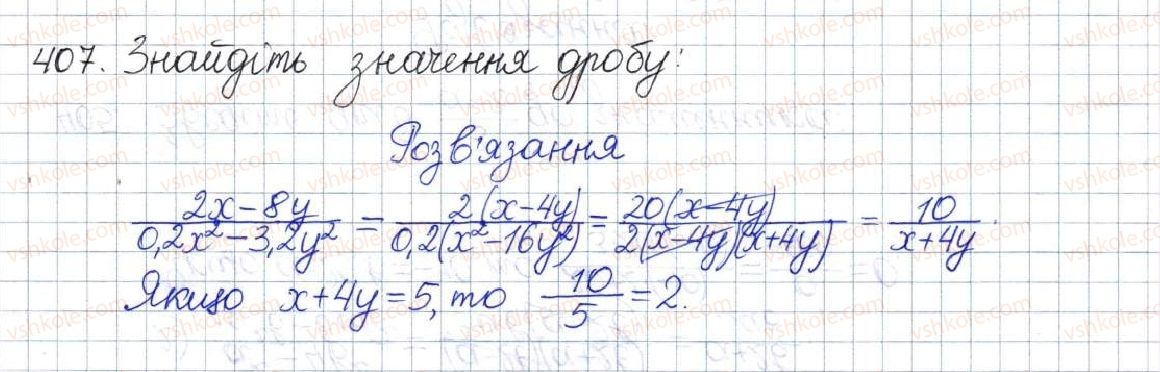 407. Знайдіть значення дробу:
Розв'язання
(2x-8y)/(0,2x²-3,2y²) = 2(x-4y)/(0,2(x²-16y²)) = 20(x-4y)/(2(x-4y)(x+4y)) = 10/(x+4y).
Якщо x+4y=5, то 10/5=2.